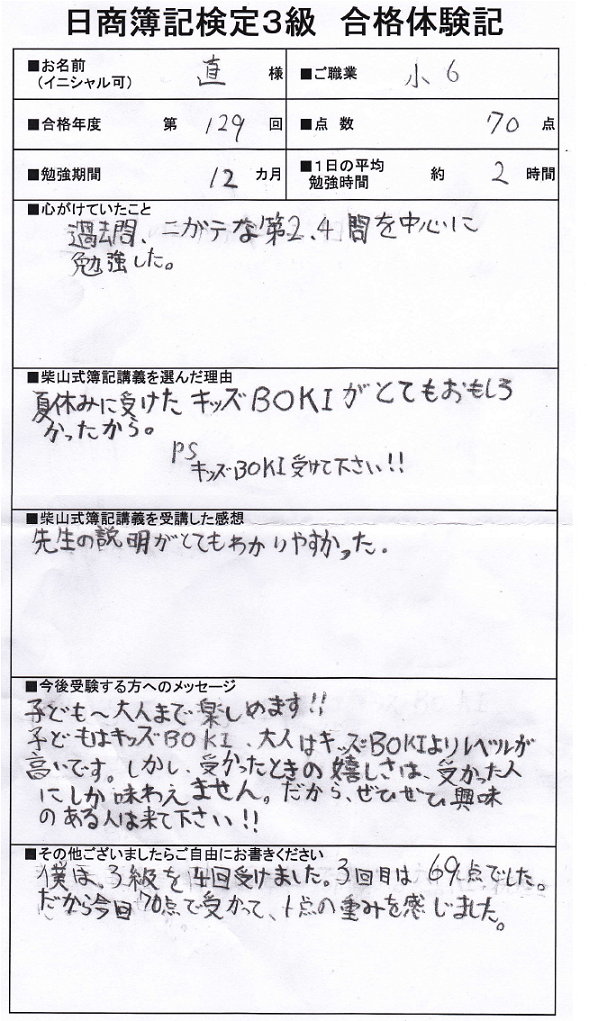 日商簿記検定3級 合格体験記
■お名前
(イニシャル可) 直 様 ■ご職業 小6
■合格年度 第 129 回 ■点数 70 点
■勉強期間 12 カ月 ■1日の平均
勉強時間 約 2 時間
■心がけていたこと
過去問、ニガテな第2、4問を中心に
勉強した。
■柴山式簿記講義を選んだ理由
夏休みに受けたキッズBOKIがとてもおもしろ
かったから。
PS
キッズBOKI受けて下さい!!
■柴山式簿記講義を受講した感想
先生の説明がとてもわかりやすかった。
■今後受験する方へのメッセージ
子ども〜大人まで楽しめます!!
子どもはキッズBOKI、大人はキッズBOKIよりレベルが
高いです。しかし、受かったときの嬉しさは、受かった人
にしか味わえません。だから、ぜひぜひ興味
のある人は来て下さい!!
■その他ございましたらご自由にお書きください
僕は、3級を4回受けました。3回目は69点でした。
だから今回70点で受かって、1点の重みを感じました。